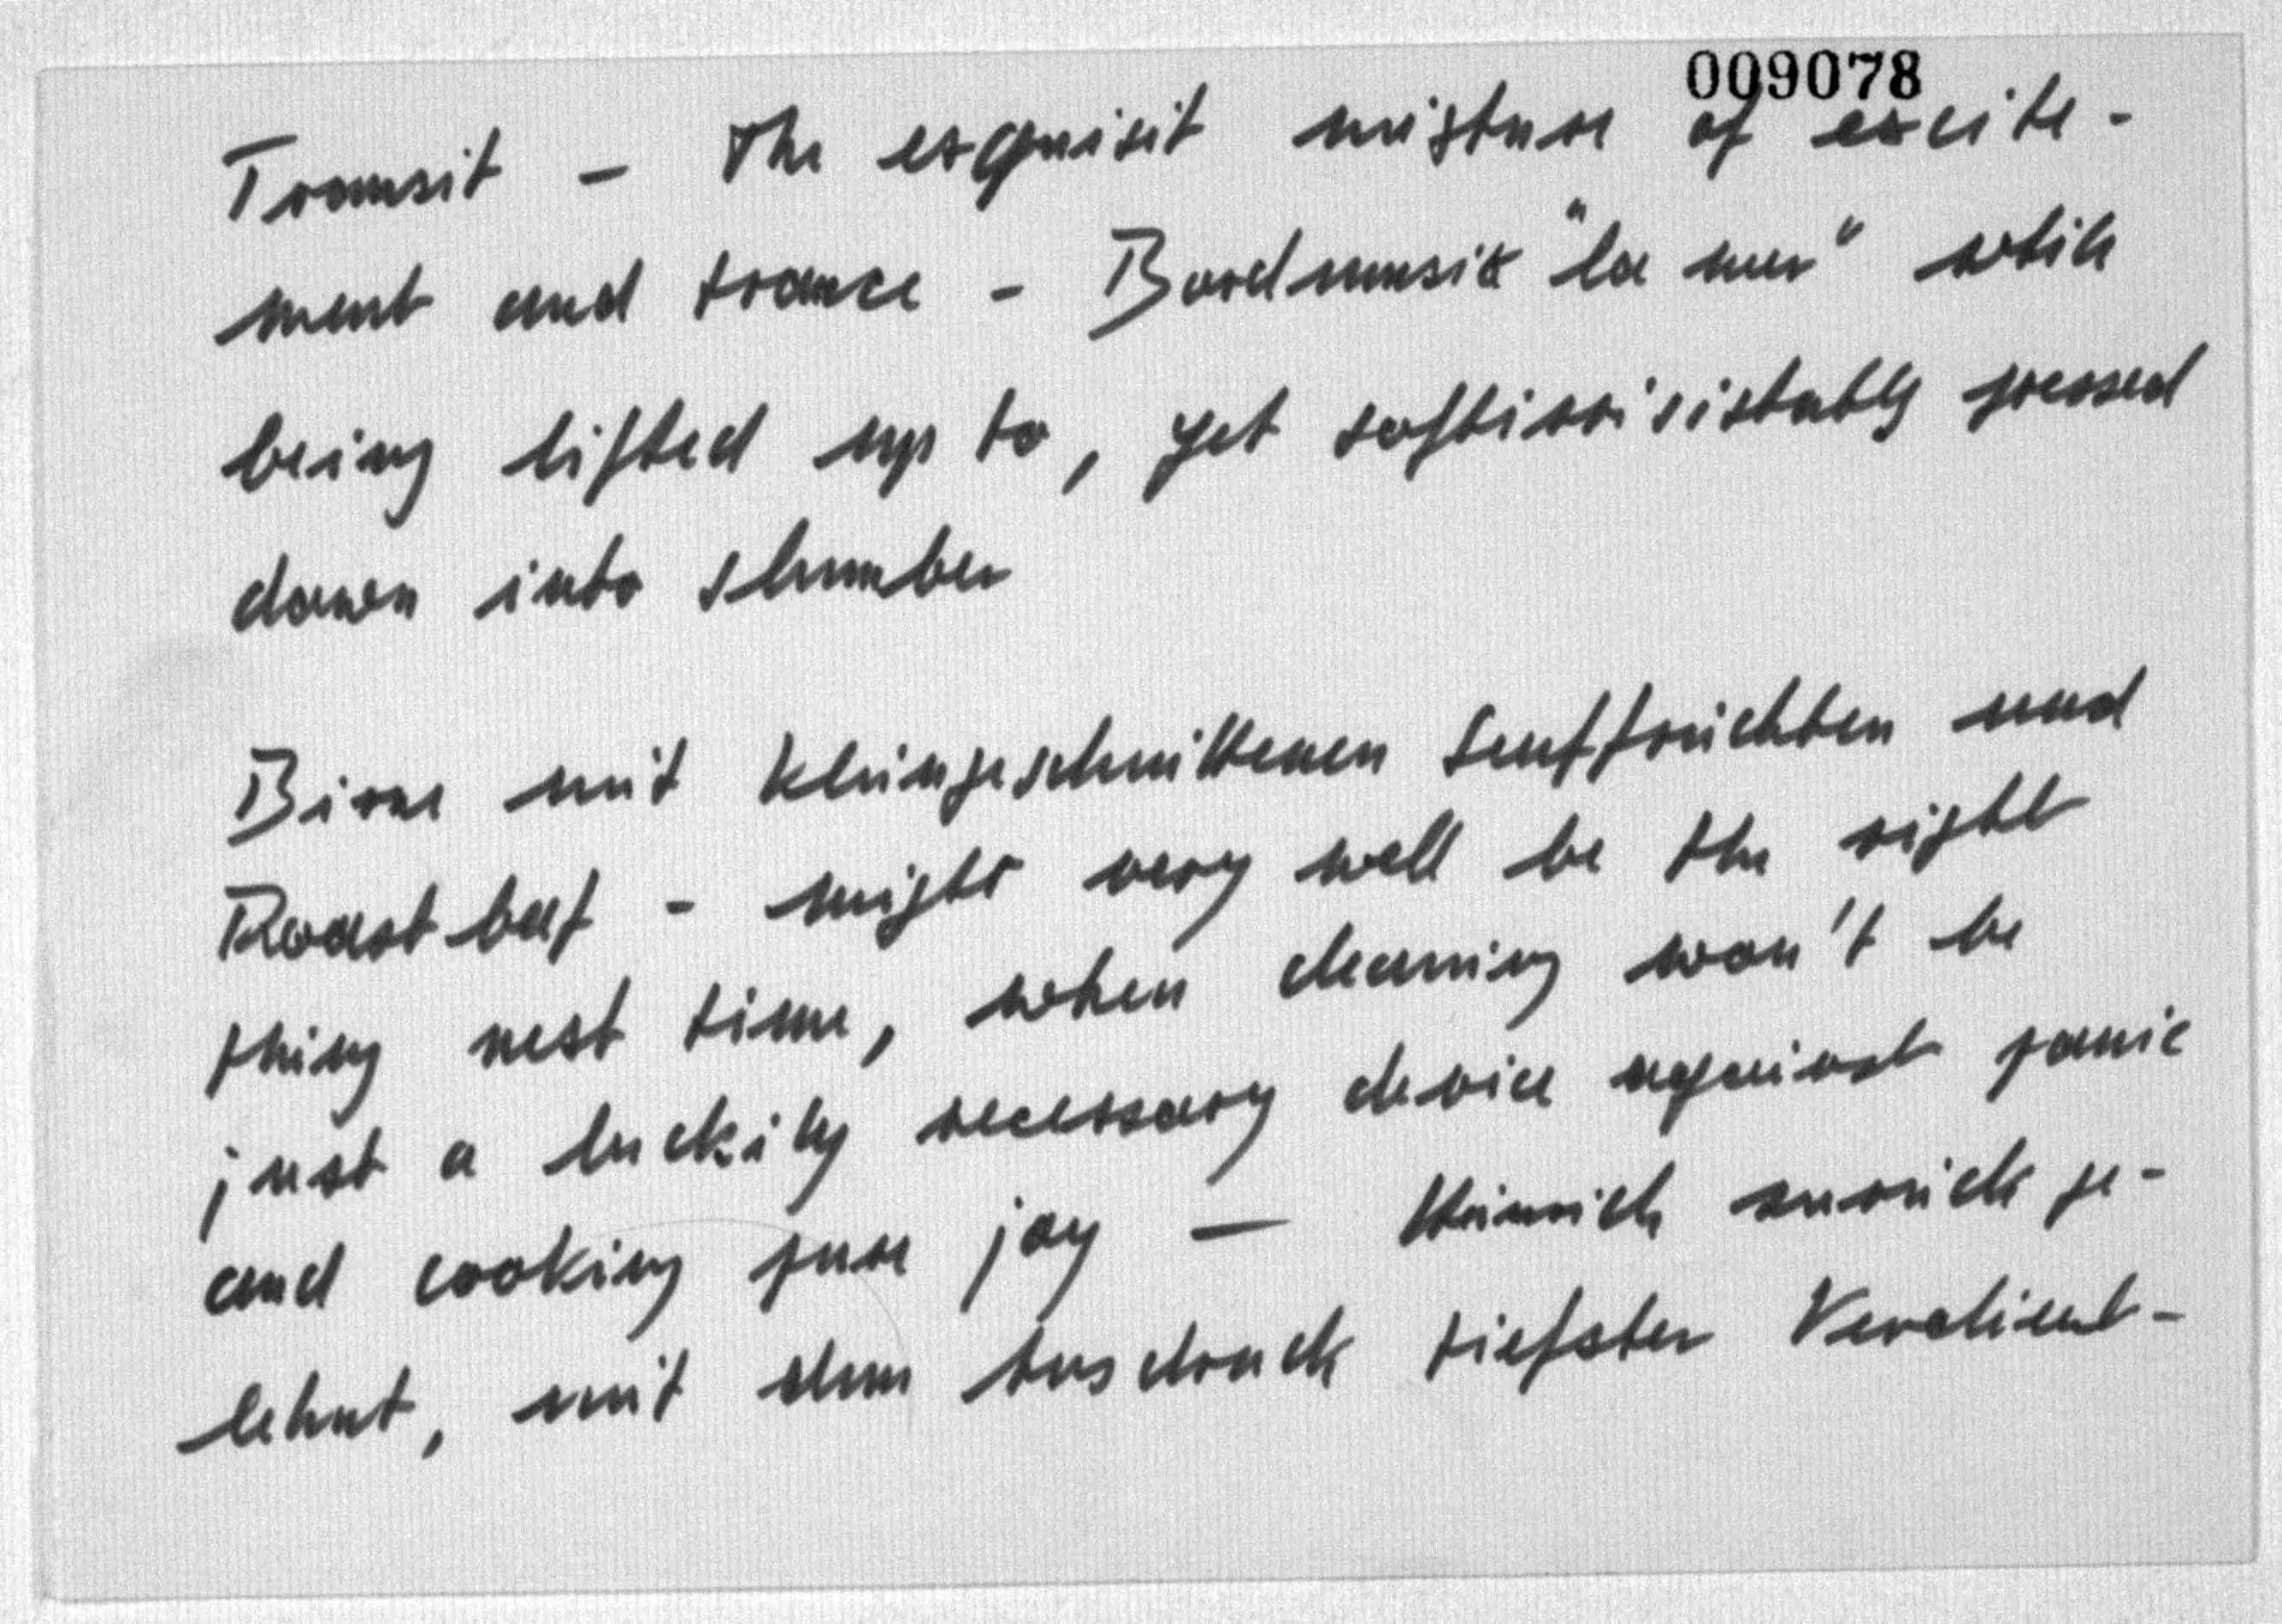 009078
Transit - The exquisit mixture of excite-
ment and trance - Bordmusik "la mer" while
being lifted up to, yet softirrisistably pressed
down into slumber
Birne mit kleingeschnittenen Senffrüchten und
Roastbeef - might very well be the right
thing next time, when cleaning won't be
just a luckily necessary device against panic
and cooking pure joy — Heinrich zurückge-
lehnt, mit dem Ausdruck tiefster Verdient-